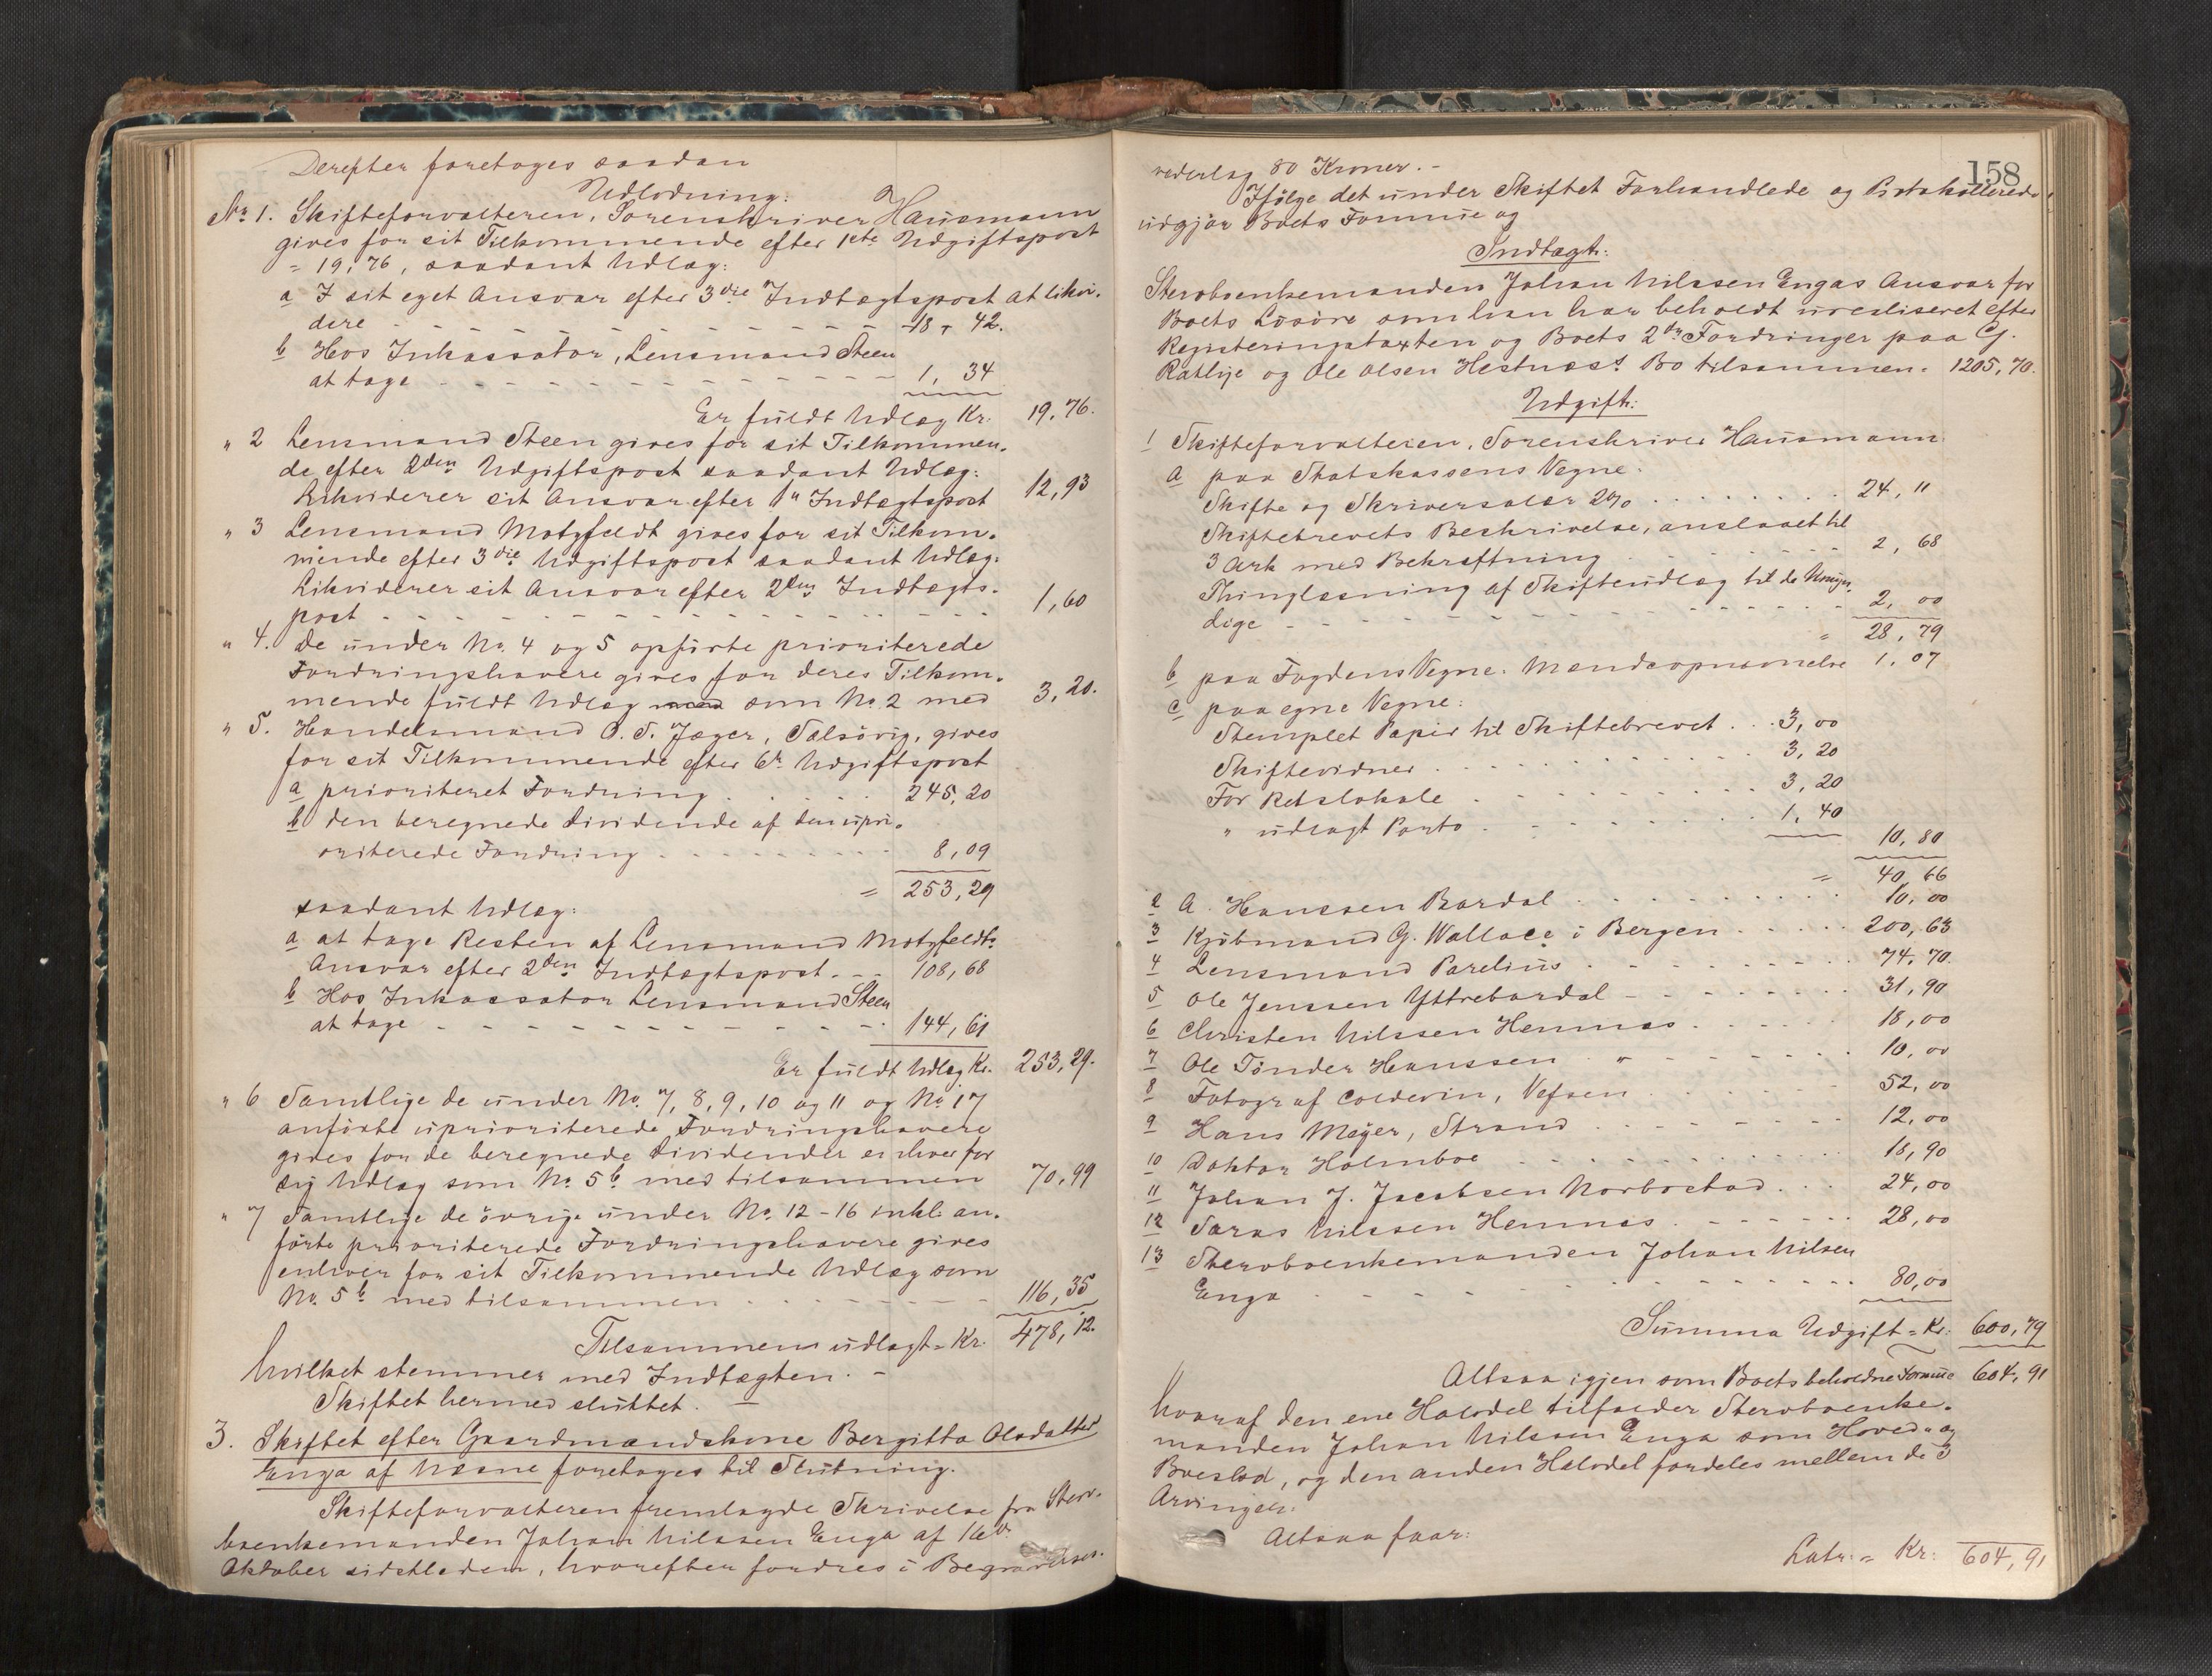 Derefter foretoges saadan
Udlodning:
No 1. Skifteforvalteren, Sorenskriver Hausmann
gives for sit Tilkommende efter 1ste Udgiftspost
= 19,76, saadant Udlæg:
a I sit eget Ansvar efter 3die Indtægtspost at likvi-
dere - - - 18, 42.
b Hos Inkassator, Lensmand Steen
at tage - - - 1, 34
Er fuldt Udlæg Kr. 19,76.
" 2 Lensmand Steen gives for sit Tilkommen-
de efter 2den Udgiftspost saadant Udlæg:
Likviderer sit Ansvar efter 1ste Indtægtspost 12,93
" 3 Lensmand Motzfeldt gives for sit Tilkom-
mende efter 3die Udgiftspost saadant Udlæg:
Likviderer sit Ansvar efter 2den Indtægts-
post - - - 1,60
" 4. De under No. 4 og 5 opførte prioriterede
Fordringshavere gives for deres Tilkom-
mende fuldt Udlæg med som No. 2 med 3,20.
" 5. Handelsmand O. S. Jæger, Sælsövig, gives
for sit Tilkommende efter 6te Udgiftspost
a prioriteret Fordring . . . 245,20
b den beregnede Dividende af den upri-
oriterede Fordring . . . 8,09
= 253,29
saadant Udlæg:
a at tage Resten af Lensmand Motzfeldts
Ansvar efter 2den Indtægtspost. - - 108,68
b Hos Inkassator Lensmand Steen
at tage - - - 144,61
Er fuldt Udlæg Kr. 253,29.
" 6 Samtlige de under No. 7, 8, 9, 10 og 11 og No 17
anførte uprioriterede Fordringshavere
gives for de beregnede Dividender enhver for
sig Udlæg som No. 5b med tilsammen 70,99
" 7 Samtlige de övrige under No. 12-16 inkl. an-
førte prioriterede Fordringshavere gives
enhver for sit Tilkommende Udlæg som
No. 5b med tilsammen - - - 116,35
Tilsammen udlagt = Kr. 478,12.
hvilket stemmer med Indtægten. -
Skiftet hermed sluttet.
3. Skiftet efter Gaardmandskone Bergitta Olsdatter
Enga af Næsne foretoges til Slutning.
Skifteforvalteren fremlagde Skrivelse fra Sterv-
boenkemanden Johan Nilssen Enga af 16de
Oktober sidstleden, hvorefter fordres i Begravelses-
158
vederlag 80 Kroner. -
Ifølge det under Skiftet Forhandlede og Protokollerede
udgjør Boets Formue og
Indtægt:
Stervboenkemanden Johan Nilssen Engas Ansvar for
Boets Løsøre som han har beholdt urealiseret efter
Registeringstaxten og Boets 2de Fordringer paa Cj.
Ratlije og Ole Olsen Hestnæss Bo tilsammen = 1205,70.
Udgift:
1 Skifteforvalteren, Sorenskriver Hausmann
a paa Statskassens Vegne:
Skifte og Skriversalær 2% . . . 24, 11
Skiftebrevets Beskrivelse, anslaaet til
3 Ark med Bekræftning . . . 2, 68
Thinglæsning af Skifteudlæg til de Umyn-
dige - - - 2, 00
= 28, 79
b paa Fogdens Vegne: Mandsopnævnelse 1, 07
c paa egne Vegne:
Stemplet Papir til Skiftebrevet . . . 3, 00
Skiftevidner . . . 3, 20
For Retslokale . . . 3, 20
" udlagt Porto . . . 1, 40
10, 80
= 40, 66
2 A. Hanssen Bardal . . . 10, 00
3 Kjøbmand G. Wallace i Bergen . . . 200, 63
4 Lensmand Parelius . . . 74, 70.
5 Ole Jenssen Yttrebardal - - - 31, 90
6 Christen Nilssen Hemnæs . . . 18, 00
7 Ole Tønder Hanssen " - - - 10, 00
8 Fotograf Coldevin, Vefsen . . . 52, 00
9 Hans Meyer, Strand . . . 12, 00
10 Doktor Holmboe . . . 18, 90
11 Johan J. Jacobsen Norbostad . . . 24, 00
12 Saras Nilssen Hemnæs . . . 28, 00
13 Stervboenkemanden Johan Nilsen
Enga . . . 80, 00
Summa Udgift = Kr: 600, 79
Altsaa igjen som Boets beholdne Formue 604, 91
hvoraf den ene Halvdel tilfalder Stervboenke-
manden Johan Nilssen Enga som Hoved- og
Boeslod, og den anden Halvdel fordeles mellem de 3
Arvinger.
Altsaa faar:
Latr. = Kr: 604, 91